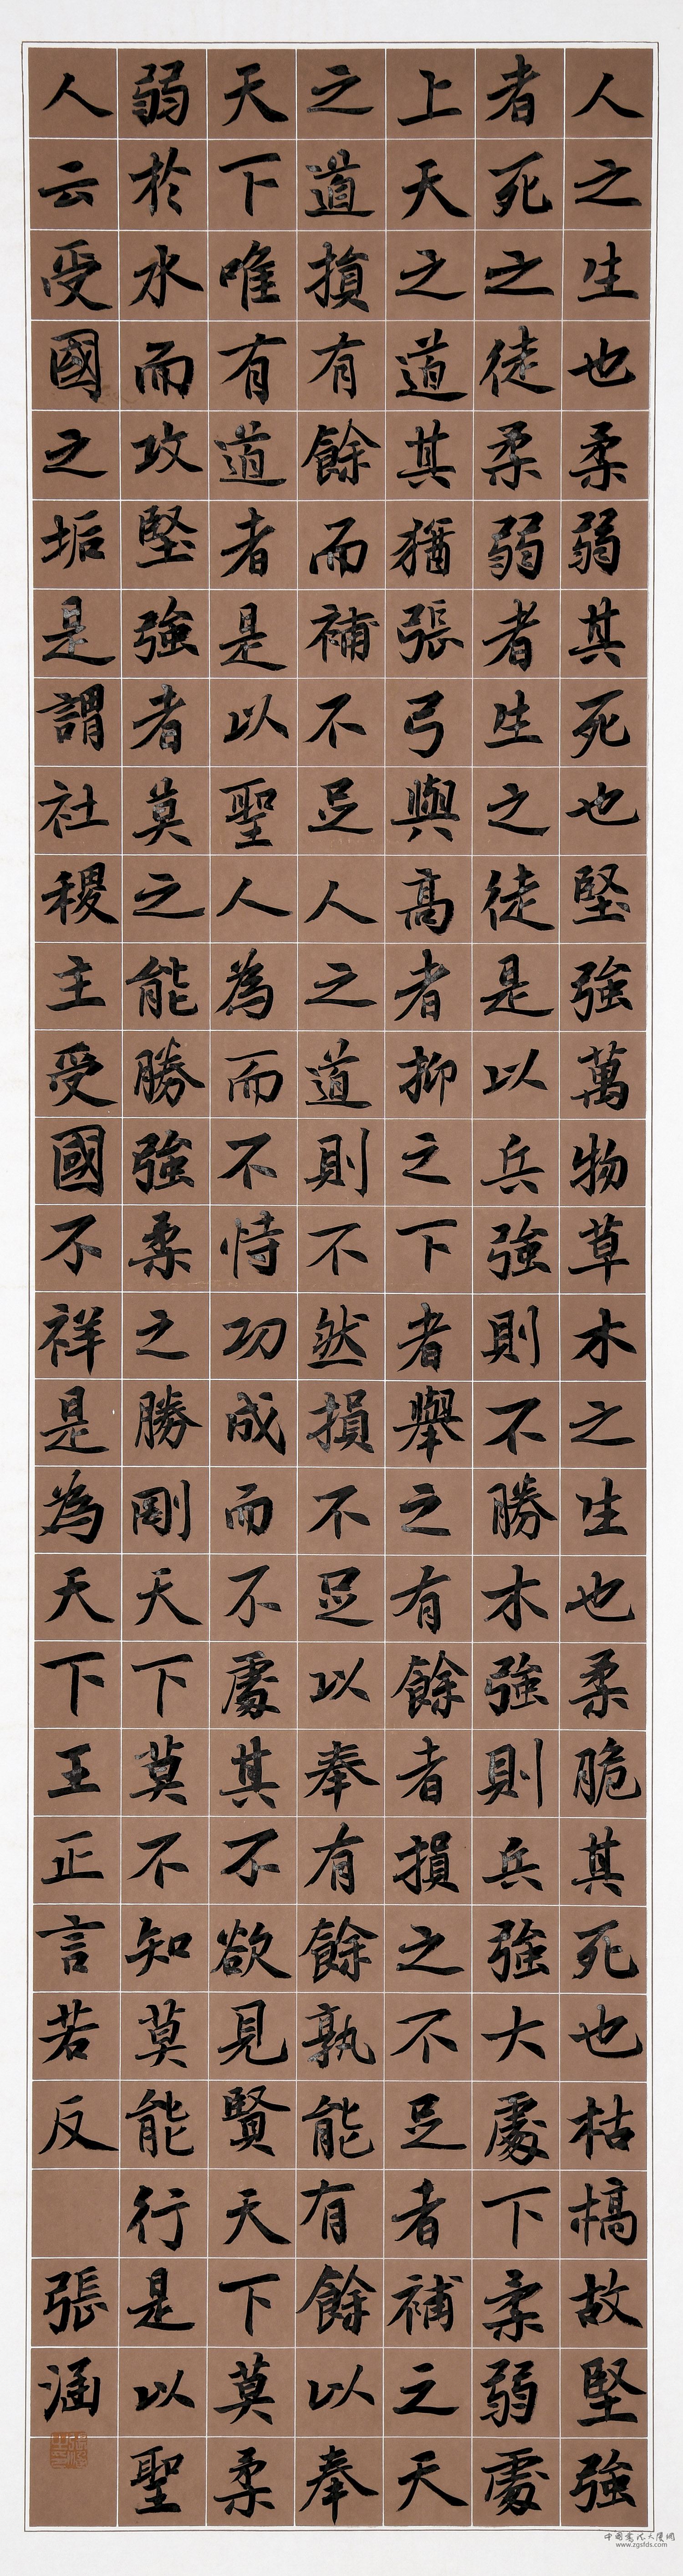 人之生也柔弱其死也堅強萬物草木之生也柔脆其死也枯槁故堅強
者死之徒柔弱者生之徒是以兵強則不勝木強則兵強大處下柔弱處
上天之道其猶張弓與高者抑之下者舉之有餘者損之不足者補之天
之道損有餘而補不足人之道則不然損不足以奉有餘孰能有餘以奉
天下唯有道者是以聖人為而不恃功成而不處其不欲見賢天下莫柔
弱於水而攻堅強者莫之能勝強柔之勝剛天下莫不知莫能行是以聖
人云受國之垢是謂社稷主受國不祥是為天下王正言若反 張涵
中国书法大厦网
www.zgsfds.com